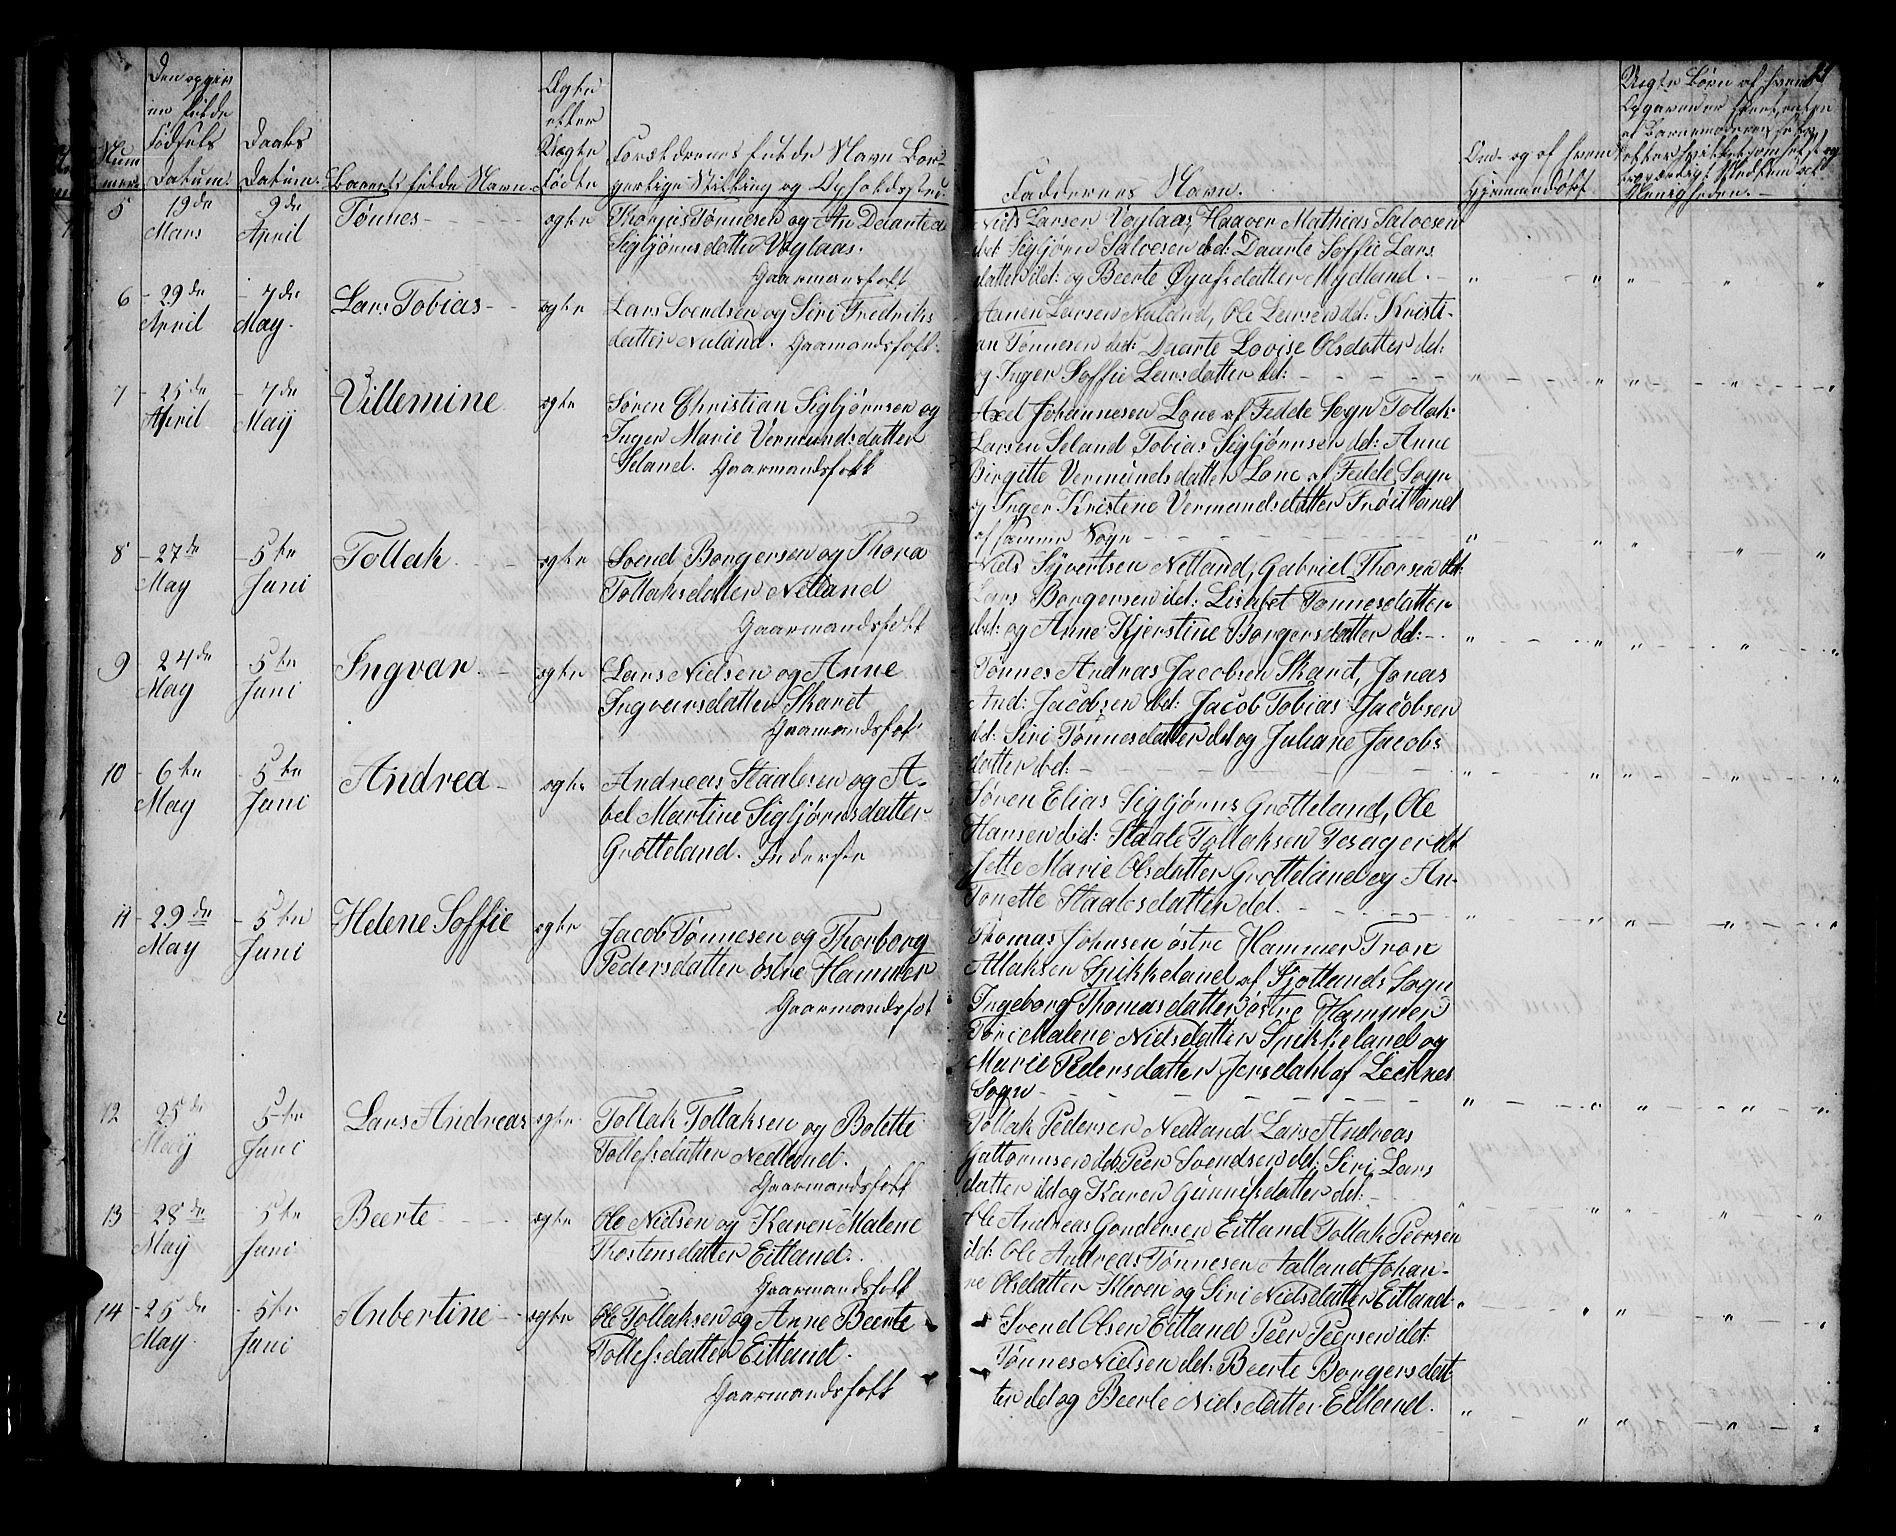 Den opgiv
ne fulde
Fødsels
Datum.
Num
mer.
Daabs
Datum.
Barnets fulde Navn.
Ægte
eller
Uægte
Fødte
Forældrenes fulde Navn Bor-
gerlige Stilling og Opholdssted.
Faddernes Navn.
Om- og af hvem
Hjemmedøbt
5 19de Mars 9de April Tønnes ægte
Tønnesen og
Sigbjørnsdatter Voglaas.
Gaarmansfolk
Niels Larsen Voglaas, Haaver Mathias Salvesen
Sigbjørn Salvesen ibd: Daarte Soffie Lars
datter ibd: og Beerte datter Mydland.
6 29de April 7de May Lars Tobias ægte
Lars Svendsen og Siri Fredriks
datter Nuland. Gaarmandsfolk
Larsen Nuland, Ole ibd: Kristi-
an Tønnesen ibd: Daarte Lovise Olsdatter ibd:
og Inger Soffie datter ibd:
7 25de April 7de May Villemine ægte
Søren Christian Sigbjørnsen og
Inger Marie Vermundsdatter
Seland. Gaarmandsfolk
Axel Johannesen Lone af Fedde Sogn Tollak
Larsen Seland Tobias Sigbjørnsen ibd: Anne
Birgitte Vermundsdatter Lone af Fedde Sogn
og Inger Kristine Vermundsdatter
af samme Sogn
8 27de May 5te Juni Tollak ægte
Svend Borgersen og Thora
Tollaksdatter Netland
Gaarmandsfolk
Niels Syvertsen Netland, Gabriel Thorsen ibd:
Lars Borgersen ibd: Lisabet Tønnesdatter
ibd: og Anne Kjerstine Borgersdatter ibd:
9 24de May 5te Juni Ingvar ægte
Lars Nielsen og Anne
Ingvarsdatter Skaret
Gaarmandsfolk
Tønnes Andras Jacobsen Skaret, Jonas
And: Jacobsen ibd: Jacob Tobias Jacobsen
ibd: Siri Tønnesdatter ibd og Juliane Jacobs
datter ibd:
10 6te May 5te Juni Andrea ægte
Andreas Staalesen og A-
bel Martine Sigbjørnsdatter
Grøtteland. Inderste
Søren Elias Sigbjørns Grøtteland, Ole
Hansen ibd: Staale Tollaksen Tesager
Jette Marie Olsdatter Grøtteland og An-
tonette Staalesdatter ibd.
11 29de May 5te Juni Helene Soffie ægte
Jacob Tønnesen og Thorborg
Pedersdatter østre Hammer
Gaarmandsfolk
Thomas Johnsen østre Hammer Tron
Atlaksen Spikkeland af Fjotlands Sogn
Ingeborg Thomasdatter østre Hammer
Tori Malene Nielsdatter Spikkeland og
Marie Pedersdatter Jersdahl af
Sogn
12 25de May 5te Juni Lars Andreas ægte
Tollak Tollaksen og Bolette
Tollefsdatter Nedland.
Gaarmandsfolk
Tollak Pedersen Nedland Lars Andreas
Guttormsen ibd: Peer Svendsen ibd: Siri Lars
datter ibd og Karen Gunnufsdatter ibd:
13 28de May 5te Juni Beerte ægte
Ole Nielsen og Karen Malene
Thostensdatter Eitland.
Gaarmandsfolk
Ole Andreas Gondersen Eitland Tollak Peersen
ibd: Ole Andreas Tønnesen Aatland Johan-
ne Olsdatter Kleven og Siri Nielsdatter Eitland
14 25de May 5te Juni Anbertine ægte
Ole Tollaksen og Anne Beerte
Tollefsdatter Eitland.
Gaarmandsfolk
Svend Olsen Eitland Peer Peersen ibd:
Tønnes Nielsen ibd: Beerte Borgersdat
ter ibd og Beerte Nielsdatter Eitland.